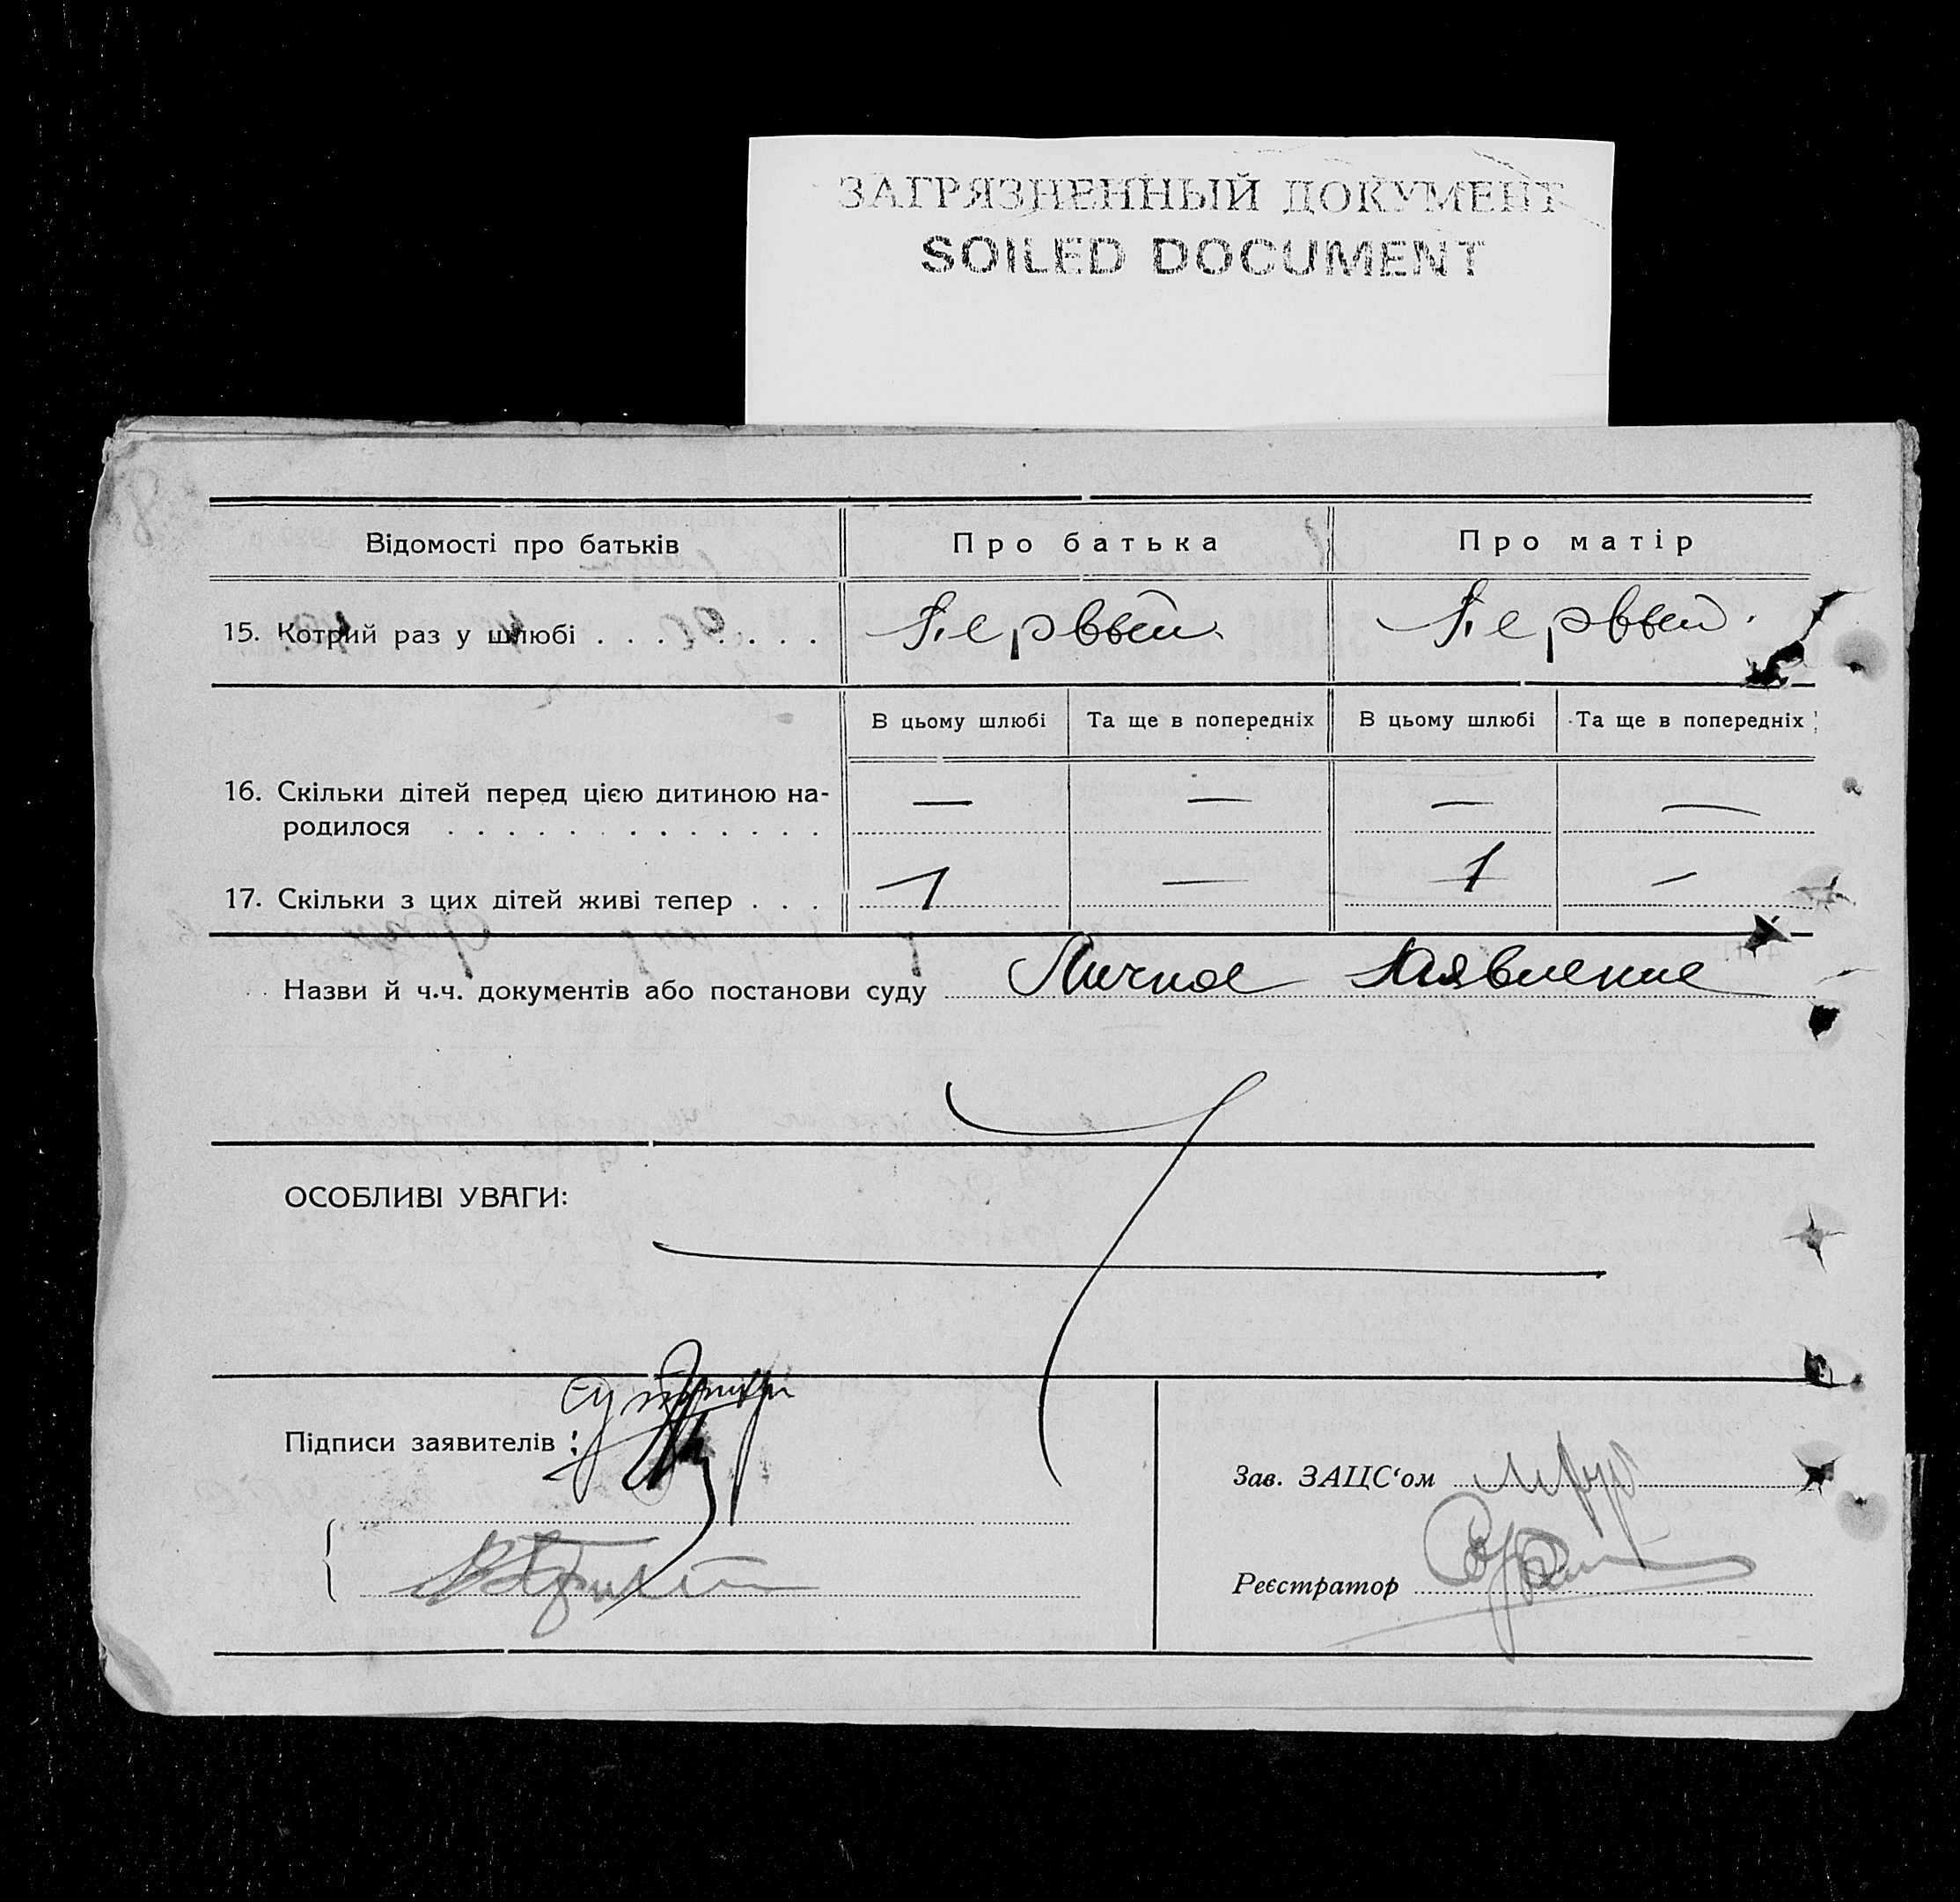 ЗАГРЯЗНЕННЫЙ ДОКУМЕНТ
SOILED DOCUMENT
Відомості про батьків Про батька Про матір
15. Котрий раз у шлюбі . . . . . . . . Первый Первый
В цьому шлюбі Та ще в попередніх В цьому шлюбі Та ще в попередніх
16. Скільки дітей перед цією дитиною на- — — — —
родилося . . . . . . . . . . . . .
17. Скільки з цих дітей живі тепер . . . 1 — 1 —
Назви й ч.ч. документів або постанови суду Личное заявление
ОСОБЛИВІ УВАГИ:
Підписи заявителів :
Зав. ЗАЦС‘ом
Реєстратор